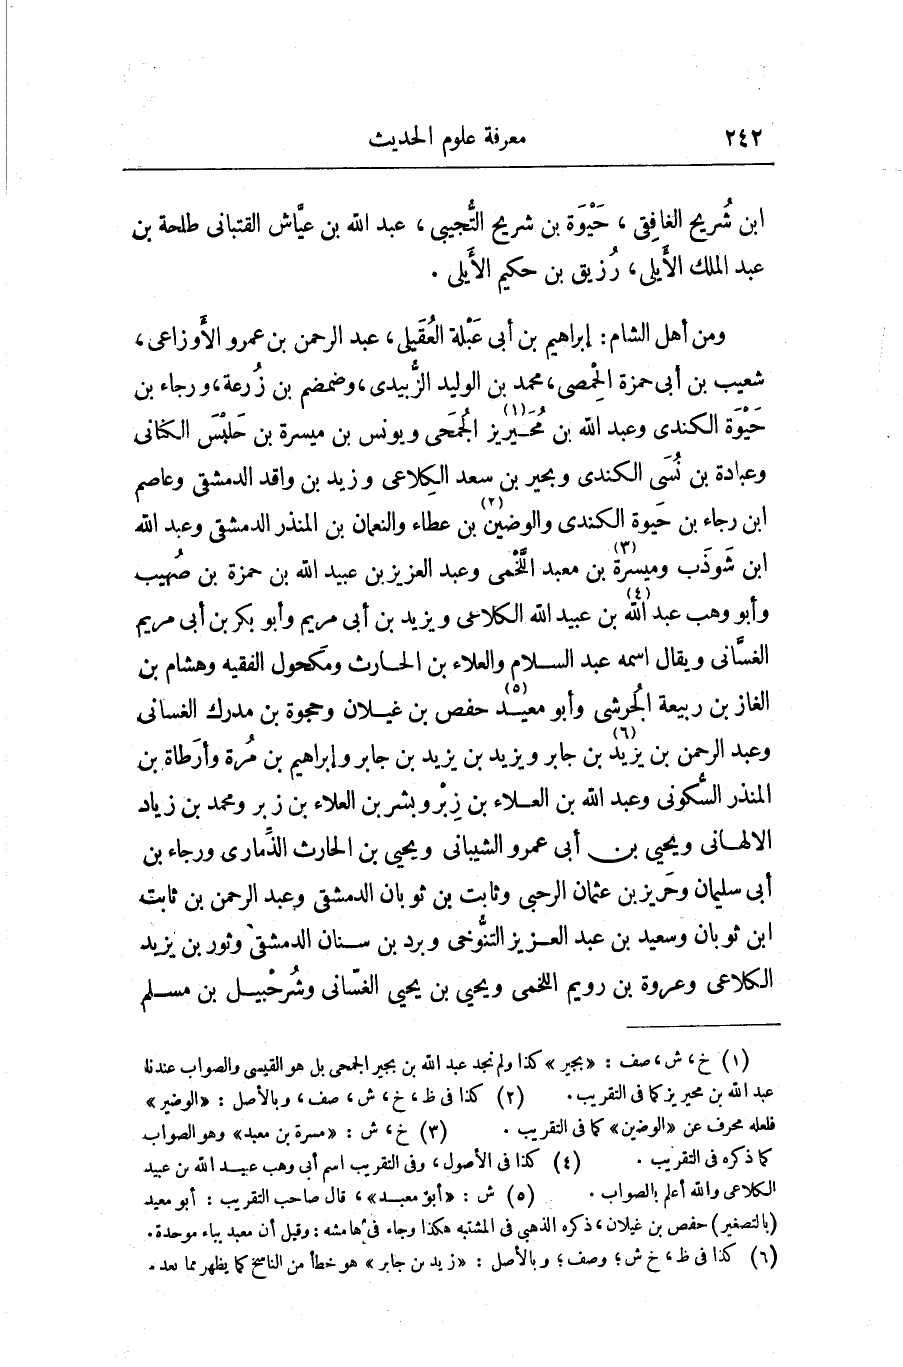 ٢٤٢ معرفة علوم الحديث
ابن شُريح الغافِقى ، حَيْوَة بن شريح التُّجيبى ، عبد الله بن عيَّاش القتبانى طلحة بن
عبد الملك الأَيلى، رُزيق بن حكيم الأَيلى .
ومن أهل الشام : إبراهيم بن أبى عَبْلة العُقَيلى، عبد الرحمن بن عمرو الأَوزاعى ،
شعيب بن أبى حمزة الحِمْصى، محمد بن الوليد الزُّبيدى، وضمضم بن زُرعة، ورجاء بن
حَيْوَة الكندى وعبد الله بن مُحَيريز (١) الجُمَحى ويونس بن ميسرة بن حَلْبَس الكنانى
وعبادة بن نُسَى الكندى وبحير بن سعد الكلاعى وزيد بن واقد الدمشقى وعاصم
ابن رجاء بن حَيوة الكندى والوضين (٢) بن عطاء والنعمان بن المنذر الدمشقى وعبد الله
ابن شَوذَب وميسرة (٣) بن معبد اللَّخْمى وعبد العزيز بن عبيد الله بن حمزة بن صُهيب
وأبو وهب عبد الله (٤) بن عبيد الله الكلاعى ويزيد بن أبى مريم وأبو بكر بن أبى مريم
الغسَّانى ويقال اسمه عبد السلام والعلاء بن الحارث ومكحول الفقيه وهشام بن
الغاز بن ربيعة الجُرشى وأبو معيد (٥) حفص بن غيلان وحجوة بن مدرك الغسانى
وعبد الرحمن بن يزيد (٦) بن جابر ويزيد بن يزيد بن جابر وإبراهيم بن مُرة وأرَطاة بن
المنذر السَّكونى وعبد الله بن العلاء بن زِبْر وبشر بن العلاء بن زبر ومحمد بن زياد
الالهانى ويحيى بن أبى عمرو الشيبانى ويحيى بن الحارث الذِّمارى ورجاء بن
أبى سليمان وحَريز بن عثمان الرحبى وثابت بن ثوبان الدمشقى وعبد الرحمن بن ثابت
ابن ثوبان وسعيد بن عبد العزيز التنُّوخى وبرد بن سنان الدمشقى وثور بن يزيد
الكلاعى وعروة بن رويم اللخمى ويحيى بن يحيى الغسّانى وشُرحْبيل بن مسلم
(١) خ، ش، صف : «بجير» كذا ولم نجد عبد الله بن بجير الجمحى بل هو القيسى والصواب عندنا
عبد الله بن محيريز كما فى التقريب. (٢) كذا فى ظ، خ، ش، صف، وبالأصل : «الوضير»
فلعله محرف عن «الوضين» كما فى التقريب . (٣) خ، ش : «مسرة بن معبد» وهو الصواب
كما ذكره فى التقريب . (٤) كذا فى الأصول، وفى التقريب اسم أبى وهب عبيد الله بن عبيد
الكلاعى والله أعلم بالصواب . (٥) ش : «أبو معبد»، قال صاحب التقريب : أبو معيد
(بالتصغير) حفص بن غيلان، ذكره الذهبى فى المشتبه هكذا وجاء فى هامشه : وقيل أن معبد بباء موحدة.
(٦) كذا فى ظ، خ ش؛ وصف؛ وبالأصل : «زيد بن جابر» هو خطأ من الناسخ كما يظهر مما بعد.